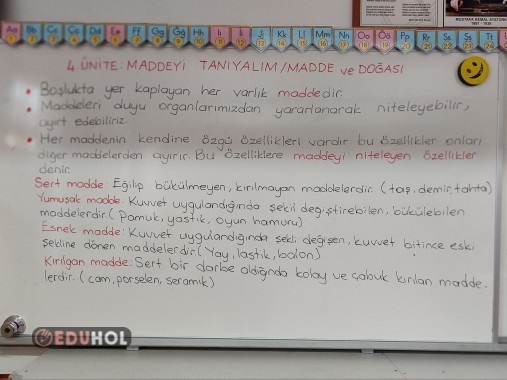 Aa Bb Cc Çç Dd Ee Ff Gg Ğğ Hh Iı İi Jj Kk Ll Mm Nn Oo Öö Pp Rr Ss Şş Tt
MUSTAFA KEMAL ATATÜRK
1881 - 1938
4.ÜNİTE: MADDEYİ TANIYALIM/MADDE ve DOĞASI
• Boşlukta yer kaplayan her varlık maddedir.
• Maddeleri duyu organlarımızdan yararlanarak niteleyebilir,
ayırt edebiliriz.
• Her maddenin kendine özgü özellikleri vardır bu özellikler onları
diğer maddelerden ayırır. Bu özelliklere maddeyi niteleyen özellikler
denir.
Sert madde: Eğilip bükülmeyen, kırılmayan maddelerdir. (taş, demir, tahta)
Yumuşak madde: Kuvvet uygulandığında şekil değiştirebilen, bükülebilen
maddelerdir. (Pamuk, yastık, oyun hamuru)
Esnek madde: Kuvvet uygulandığında şekli değişen, kuvvet bitince eski
şekline dönen maddelerdir. (Yay, lastik, balon)
Kırılgan madde: Sert bir darbe aldığında kolay ve çabuk kırılan madde.
lerdir. (cam, porselen, seramik)
EDUHOL